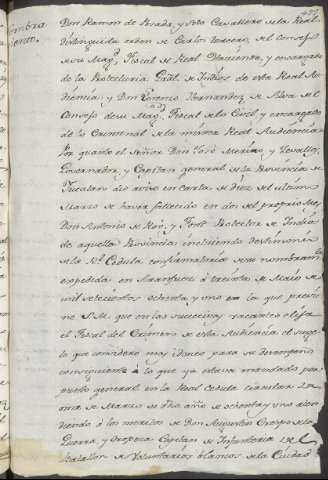 Nombra
miento.
Don Ramon de Posada, y Soto Cavallero de la Real
distinguida orden de Carlos tercero, del Consejo
de su Magd. Fiscal de Real Hazienda, y encargado
de la Protecturia Gral. de Indios de esta Real Au-
diencia; y Don Lorenzo Hernandez de Alva del
Consejo de su Magd. Fiscal de lo Civil, y encargado
de lo Criminal de la misma Real Audiencia
Por quanto el Señor Don José Merino, y Zevallos
Governador, y Capitan general de la Provincia de
Yucatan dio aviso en Carta de diez del ultimo
Marzo de haver fallecido en dos del proprio Mes
Don Antonio de Roó, y Font Protector de Indios
de aquella Provincia incluiendo testimonio
de la Rl. Cedula confirmatoria de su nombramto.
expedida en Aranjuez á treinta de Maio de
mil setecientos ochenta, y uno en la que previe-
ne S.M. que en las succesivas vacantes elija
el Fiscal del Crimen de esta Audiencia el suge-
to que considere mas idoneo para su desempeño
consiguiente á lo que estava mandado por
punto general en la Real Cedula circular
de Marzo de dho año de ochenta y uno aten-
diendo á los meritos de Don Augustin Crespo de la
Guerra, y Oropesa Capitan de Infanteria del
Batallon de Voluntarios blancos de la Ciudad